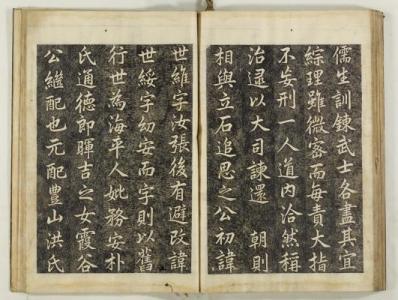 儒生訓鍊武士各盡其宜
綜理雖微密而每責大指
不妄刑一人道內洽然稱
治逮以大司諫還　朝則
相與立石追思之公初諱
世維字汝張後有避改諱
世綏字幼安而字則以舊
行世為海平人妣務安朴
氏通德郎暉吉之女霞谷
公繼配也元配豊山洪氏